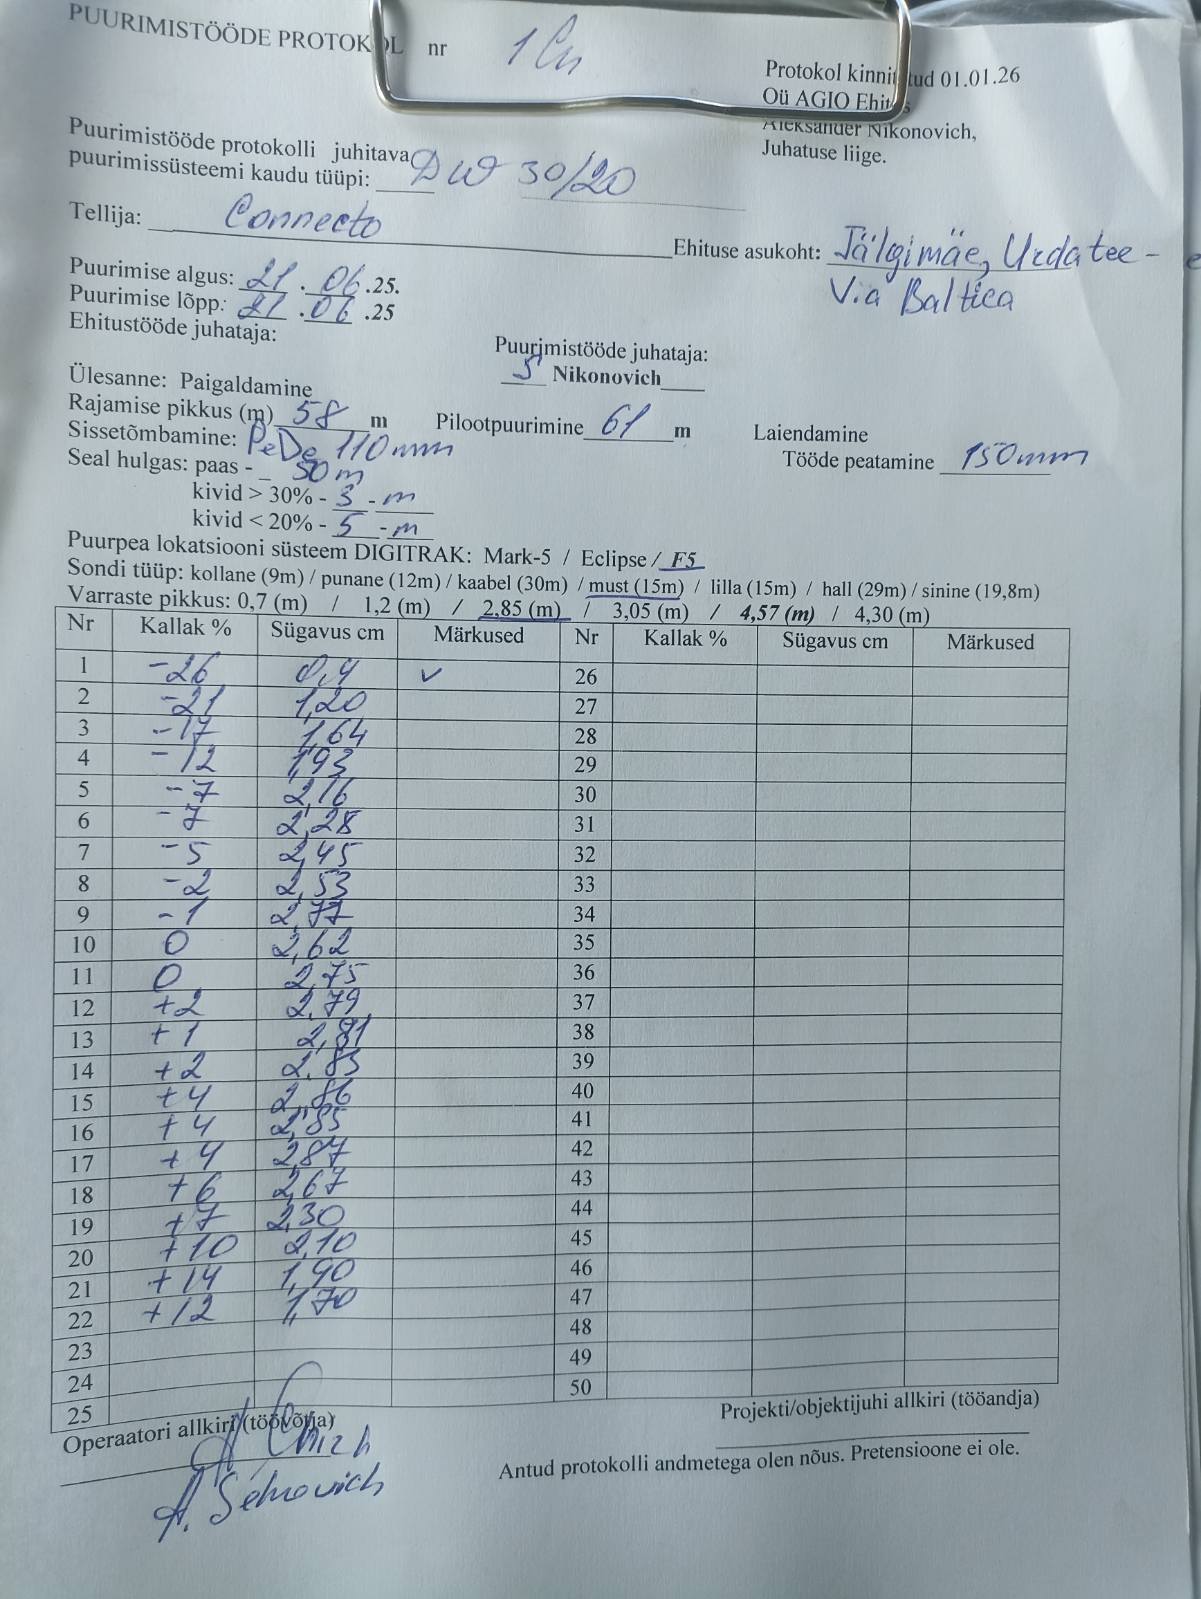 PUURIMISTÖÖDE PROTOKOL nr
Protokol kinnitatud 01.01.26
Oü AGIO Ehitus
Aleksander Nikonovich,
Juhatuse liige.
Puurimistööde protokolli juhitava
puurimissüsteemi kaudu tüüpi: DW 30/20
Tellija: Connecto
Ehituse asukoht: Jälgimäe, Urda tee -
Via Baltica
Puurimise algus: 21.06.25.
Puurimise lõpp: 21.06.25
Ehitustööde juhataja:
Puurimistööde juhataja:
S Nikonovich
Ülesanne: Paigaldamine
Rajamise pikkus (m) 58 m Pilootpuurimine 61 m Laiendamine
Sissetõmbamine: PeDe 110mm Tööde peatamine 150mm
Seal hulgas: paas - 50m
kivid > 30% - 3 - m
kivid < 20% - 5 - m
Puurpea lokatsiooni süsteem DIGITRAK: Mark-5 / Eclipse / F5
Sondi tüüp: kollane (9m) / punane (12m) / kaabel (30m) / must (15m) / lilla (15m) / hall (29m) / sinine (19,8m)
Varraste pikkus: 0,7 (m) / 1,2 (m) / 2.85 (m) / 3,05 (m) / 4,57 (m) / 4,30 (m)
Nr Kallak % Sügavus cm Märkused Nr Kallak % Sügavus cm Märkused
1 -26 0,4 v 26
2 -21 1,20 27
3 -17 1,64 28
4 -12 1,93 29
5 -7 2,16 30
6 -7 2,28 31
7 -5 2,45 32
8 -2 2,53 33
9 -1 2,77 34
10 0 2,62 35
11 0 2,75 36
12 +2 2,79 37
13 +1 2,81 38
14 +2 2,83 39
15 +4 2,86 40
16 +4 2,85 41
17 +4 2,87 42
18 +6 2,67 43
19 +7 2,30 44
20 +10 2,10 45
21 +14 1,90 46
22 +12 1,70 47
23 48
24 49
25 50
Operaatori allkiri (töövõtja)
Projekti/objektijuhi allkiri (tööandja)
Antud protokolli andmetega olen nõus. Pretensioone ei ole.